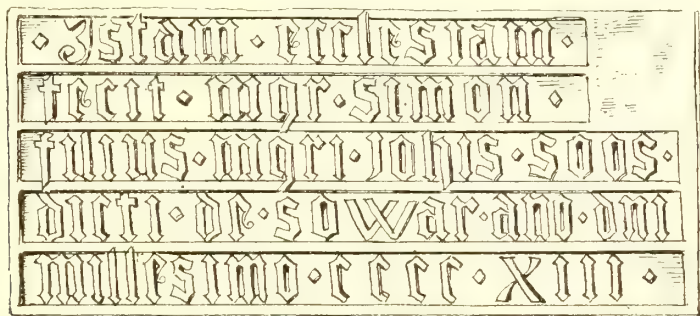 ◇ Istam · ecclesiam ·
fecit ◇ mgr · simon ◇
filius · mgri · johis · soos ·
dicti ◇ de · sowar · ano · dni
millesimo · cccc ◇ Xiii ◇